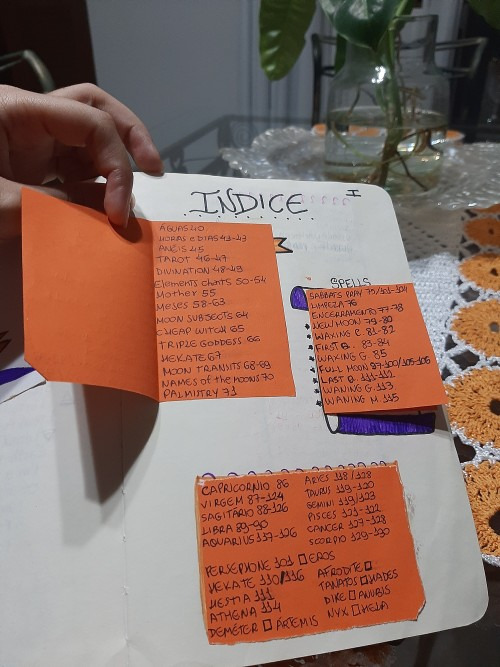 I
INDICE
ÁGUAS 40
HORAS e DIAS 41-43
ANÉIS 45
TAROT 46-47
DIVINATION 48-49
Elements charts 50-54
Mother 55
MESES 58-63
MOON SUBJECTS 64
CHEAP WITCH 65
TRIPLE GODDESS 66
HEKATE 67
MOON TRANSITS 68-69
NAMES of the MOONS 70
PALMISTRY 71
SPELLS
SABBATS PRAY 75/101-104
LIMPEZA 76
ENCERRAMENTO 77-78
NEW MOON 79-80
WAXING C. 81-82
FIRST Q. 83-84
WAXING G 85
FULL MOON 97-100/105-106
LAST Q. 111-112
WANING G. 113
WANING M. 115
CAPRICORNIO 86
VIRGEM 87-124
SAGITÁRIO 88-126
LIBRA 89-90
AQUARIUS 117-126
ARIES 118/128
TAURUS 119-120
GEMINI 119/123
PISCES 121-122
CANCER 127-128
SCORPIO 129-130
PERSEPHONE 101 EROS
HEKATE 110/116 AFRODITE
HESTIA 111 TANATOS HADES
ATHENA 114 DIKE ANUBIS
DEMÉTER ÁRTEMIS NYX HELA